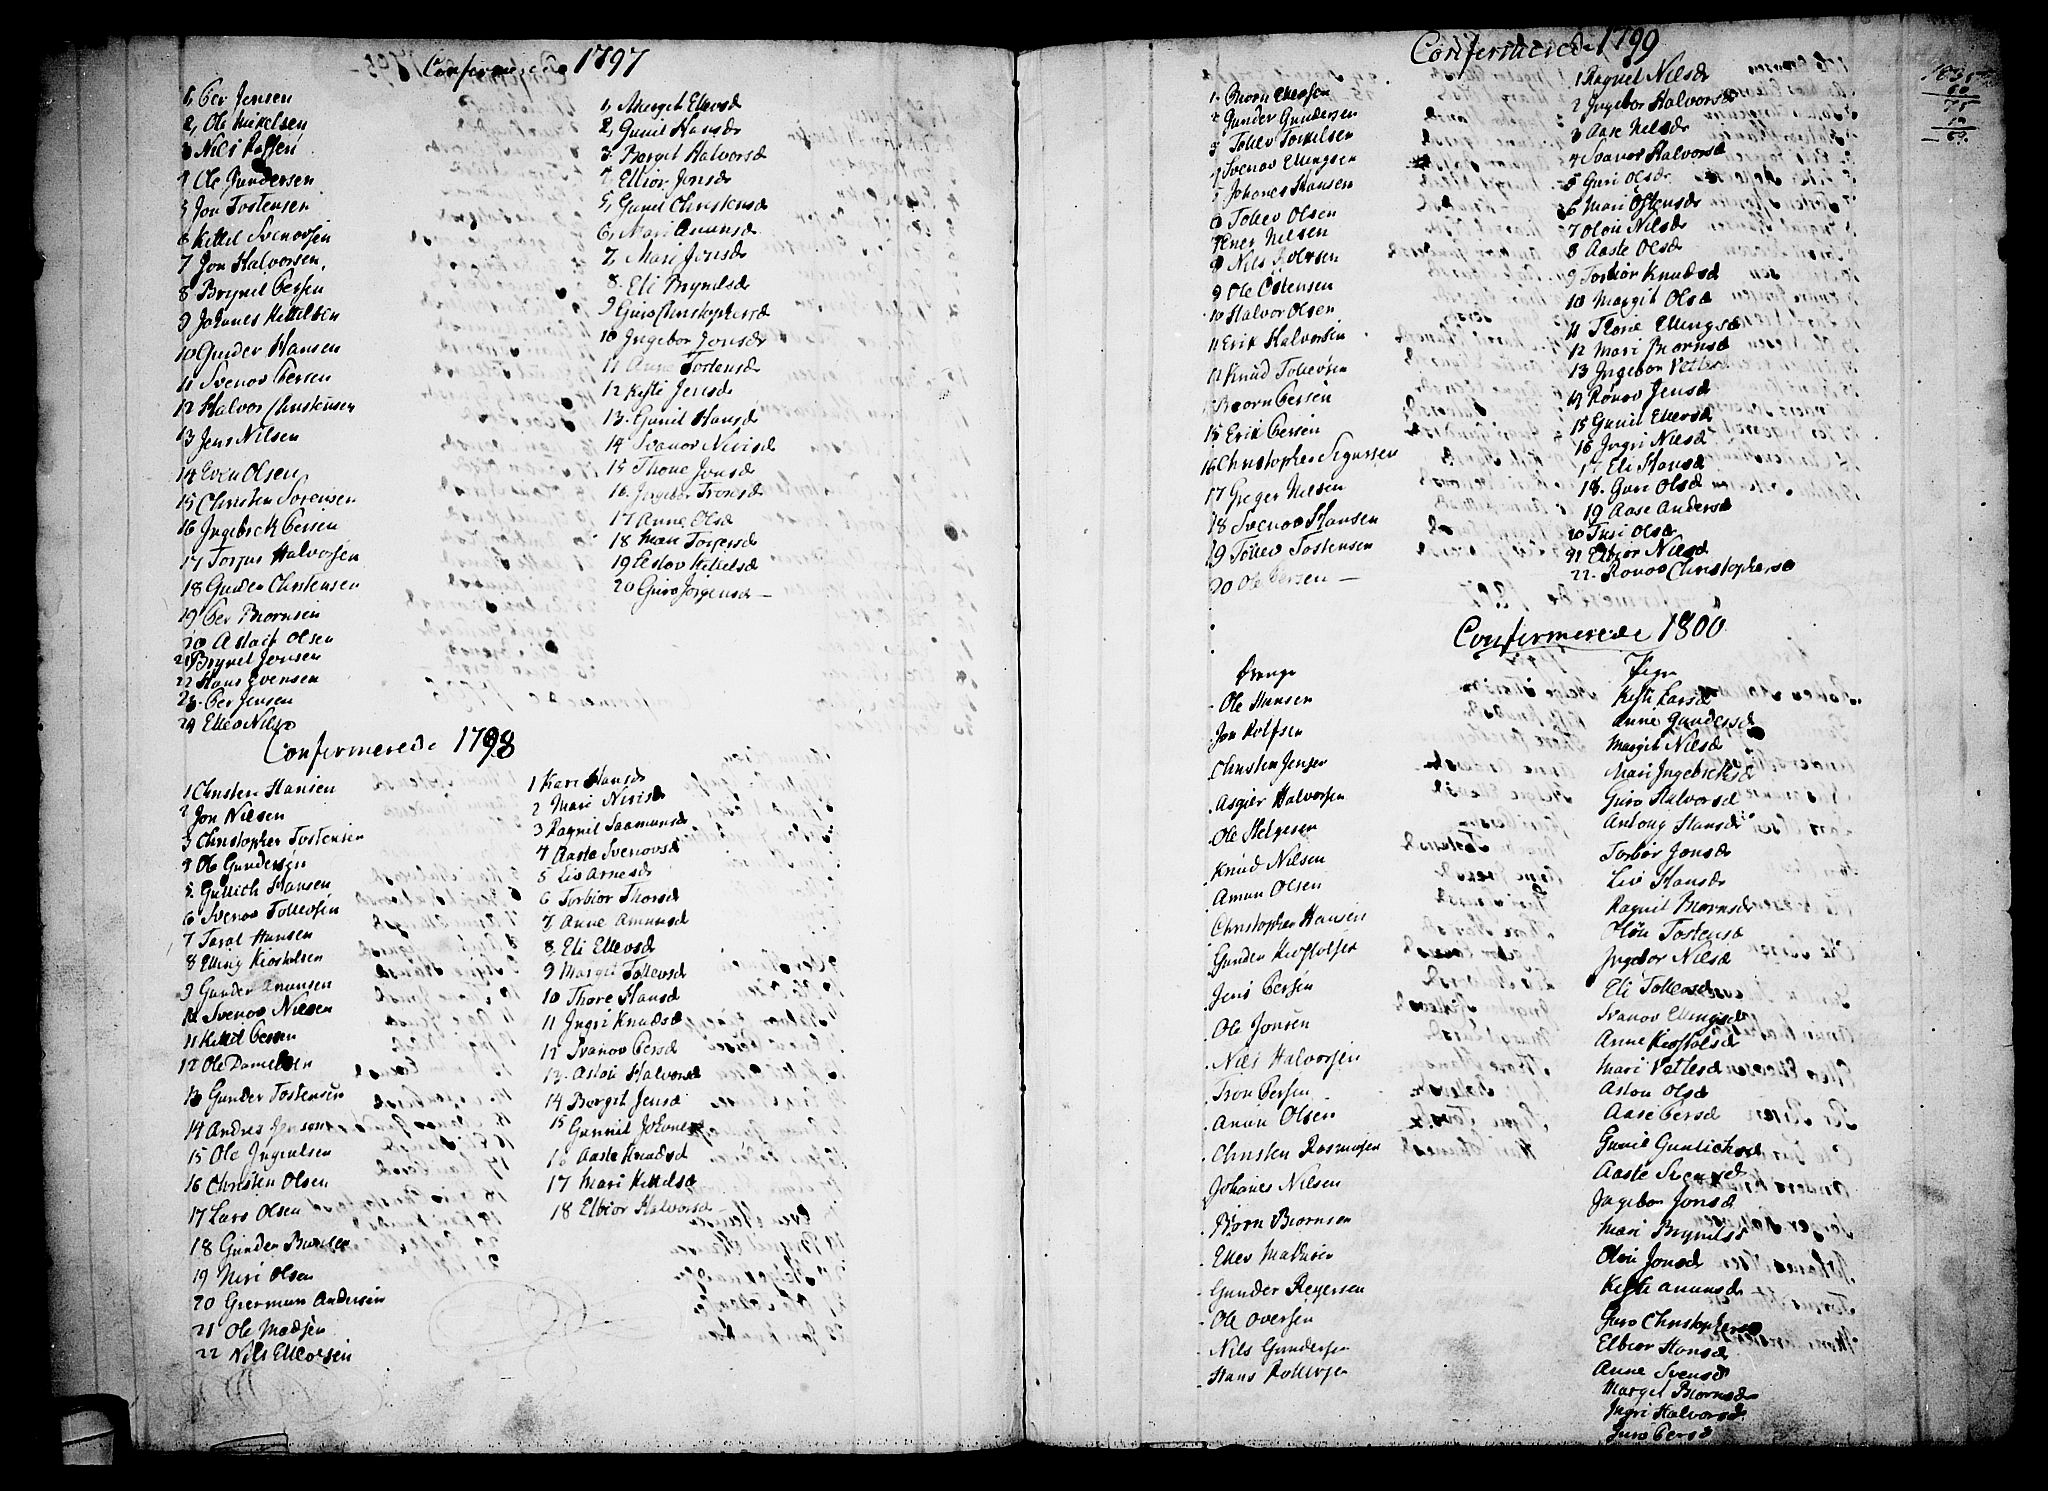 Confirmerede 1797
1, Per Jensen
2, Ole Mikelsen
3 Nils
4 Ole Gundersen
5 Jon Tostensen
6 Kittel Svenovsen
7 Jon Halvorsen,
8 Brynil Persen
9 Johanes Kittelsen
10 Gunder Hansen
11 Svenov Persen
12 Halvor Christensen
13 Jens Nilsen
14 Even Olsen
15 Christen Sorensen
16 Ingebrek Persen
17 Torjus Halvorsen
18 Gunder Christensen
19 Per Biornsen
20 Aslack Olsen
21 Brynil Jonsen
22 Hans Evensen
23. Per Jensen
24 Ellev Nilsen
1, Margit Ellevsd
2, Gunil Hansd
3. Borgit Halvorsd
4 Elbior Jonsd
5, Gunil Christensd
6, Mari Amunsd
7, Mari Jonsd
8. Eli Brynilsd
9 Guro Christophersd
10 Ingebor Jonsd
11 Anne Tostensd
12 Kisti Jensd
13. Gunil Hansd
14 Svanov Nirisd
15 Thone Jonsd
16. Ingebor Tronsd
17 Anne Olsd
18 Mari Torgersd
19 Leslov Kittelsd
20 Guro Jörgensd
Confirmerede 1798
1 Christen Hansen
2 Jon Nilsen
3 Christopher Tostensen
4 Ole Gundersen
5. Gullich Hansen
6 Svenov Tollevsen
7 Taral Hansen
8 Elling Kiostolsen
9 Gunder Knunsen
10 Svenov Nilsen
11 Kittil Persen
12 Ole Danielsen
13 Gunder Tostensen
14 Andres Jensen
15 Ole Ingulsen
16 Christen Olsen
17 Lars Olsen
18 Gunder
19 Niri Olsen
20 Giermun Andersen
21 Ole Madsen
22 Nils Ellevsen
1 Kari Hansd
2 Mari Nirisd
3 Ragnil Saamunsd
4 Aaste Svenovsd
5 Liv Arnesd
6 Torbior Thorsd
7 Anne Amunsd
8. Eli Ellevsd
9 Margit Tollevsd
10 Thore Hansd
11 Ingri Knudsd
12 Svanov Persd
13. Aslou Halvorsd
14 Borgit Jensd
15 Gunnil Johanesd
16 Aaste Knudsd
17 Mari Kittelsd
18 Elbior Halvorsd
Confirmerede 1799
1. Biorn Ellevsen
2 Gunder Gundersen
3 Tollev Torkilsen
4 Svenov Ellingsen
5 Johanes Hansen
6 Tollev Olsen
7 Ener Nilsen
8 Nils
9 Ole Ostensen
10 Halvor Olsen
11 Erik Halvorsen
12 Knud Tollevsen
Biorn Persen
15 Erik Persen
16 Christopher Sigursen
17 Greger Nilsen
18 Svenov Hansen
19 Tollev Tostensen
20 Ole Persen
1 Ragnil Nilsd
2 Ingebor Halvorsd
3 Aase Nilsd
4 Svanov Halvorsd
5 Guri Olsd
6 Mari Ostensd
7 Olou Nilsd
8 Aaste Olsd
9 Torbior Knudsd
10 Margit Olsd
11 Thone Ellingsd
12 Mari Biornsd
13 Ingebor Vetlesd
14 Rönov Jensd
15 Gunil Ellevsd
16 Ingri Nilsd
17 Eli Hansd
18. Guri Olsd
19 Aase Andersd
20 Turi Olsd
21 Elbior Nilsd
22. Ronov Christophersd
1835
60
75
10
69.
Confirmerede 1800
Drenge
Ole Hansen
Jon Rolfsen
Christen Jensen
Asgier Halvorsen
Ole Helgesen
Knud Nilsen
Amun Olsen
Christopher Hansen
Gunder Kiostolsen
Jens Persen
Ole Jonsen
Nils Halvorsen
Tron Persen
Anun Olsen
Christen Rasmusen
Johanes Nilsen
Biorn Biornsen
Ellev
Gunder Reyersen
Ole Oversen
Nils Gundersen
Hans Rollevsen
Piger
Kisti Larsd
Anne Gundersd
Margit Nilsd
Mari Ingebreksd
Guro Halvorsd
Antony Hansd
Torbör Jonsd
Liv Hansd
Ragnil Biornsd
Olou Tostensd
Ingebor Nilsd
Eli Tollevsd
Svanov Ellingsd
Anne Kiostolsd
Mari Vetlesd
Aslou Olsd
Aase Persd
Gunil Gunlichsd
Aaste Svensd
Ingebor Jonsd
Mari Brynilsd
Olou Jonsd
Kisti Amunsd
Guro Christophersd
Elbior Hansd
Anne Svensd
Margit Biornsd
Ingri Halvorsd
Guro Persd